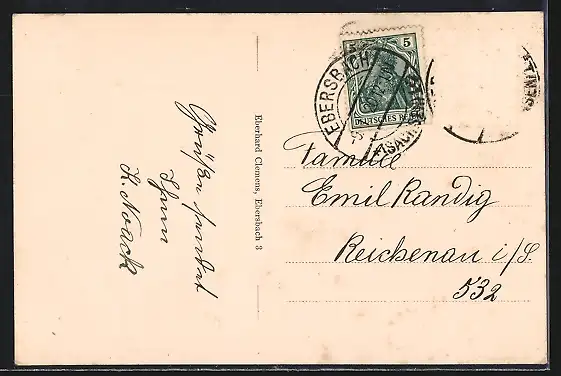 Grüße sendet
Ihnen
K. Noack
Eberhard Clemens, Ebersbach 3
5
DEUTSCHES REICH
EBERSBACH
(SACHSEN)
Familie
Emil Randig
Reichenau i/S.
532